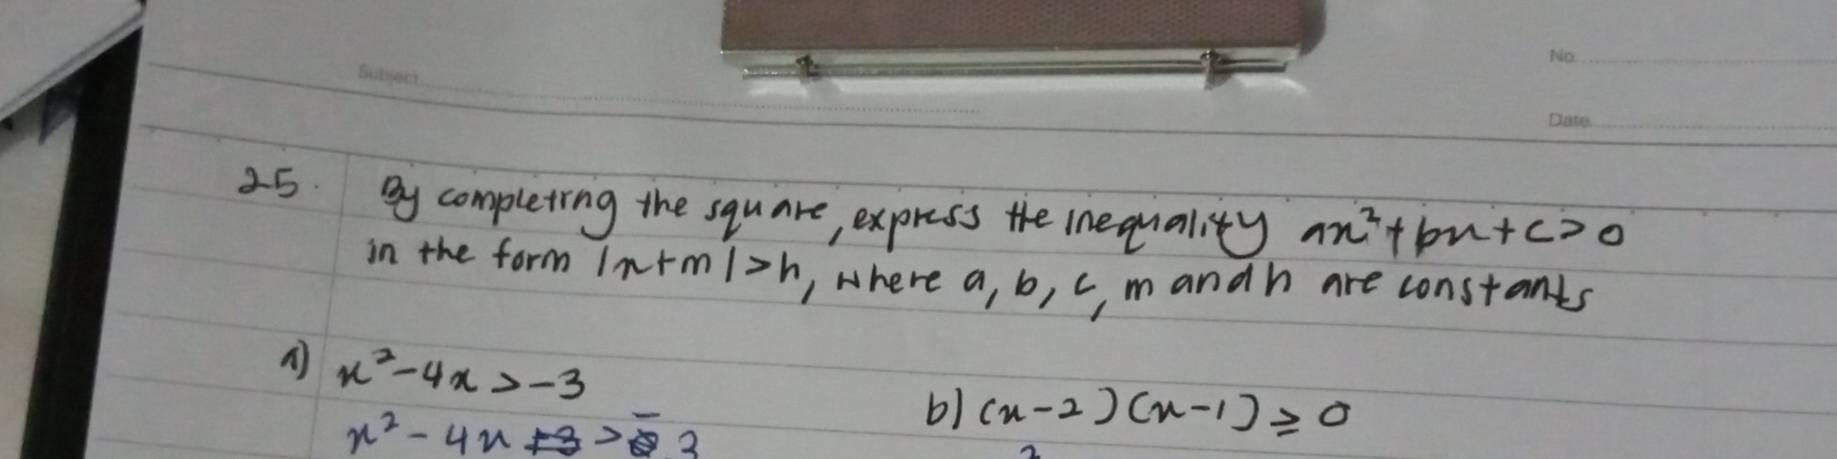 Subject
No.
Date
25. By completing the square, express the inequality ax²+bx+c>0
in the form |x+m|>h, where a, b, c, m and h are constants
a) x²-4x>-3
b) (x-2)(x-1)≥0
x²-4x > -3